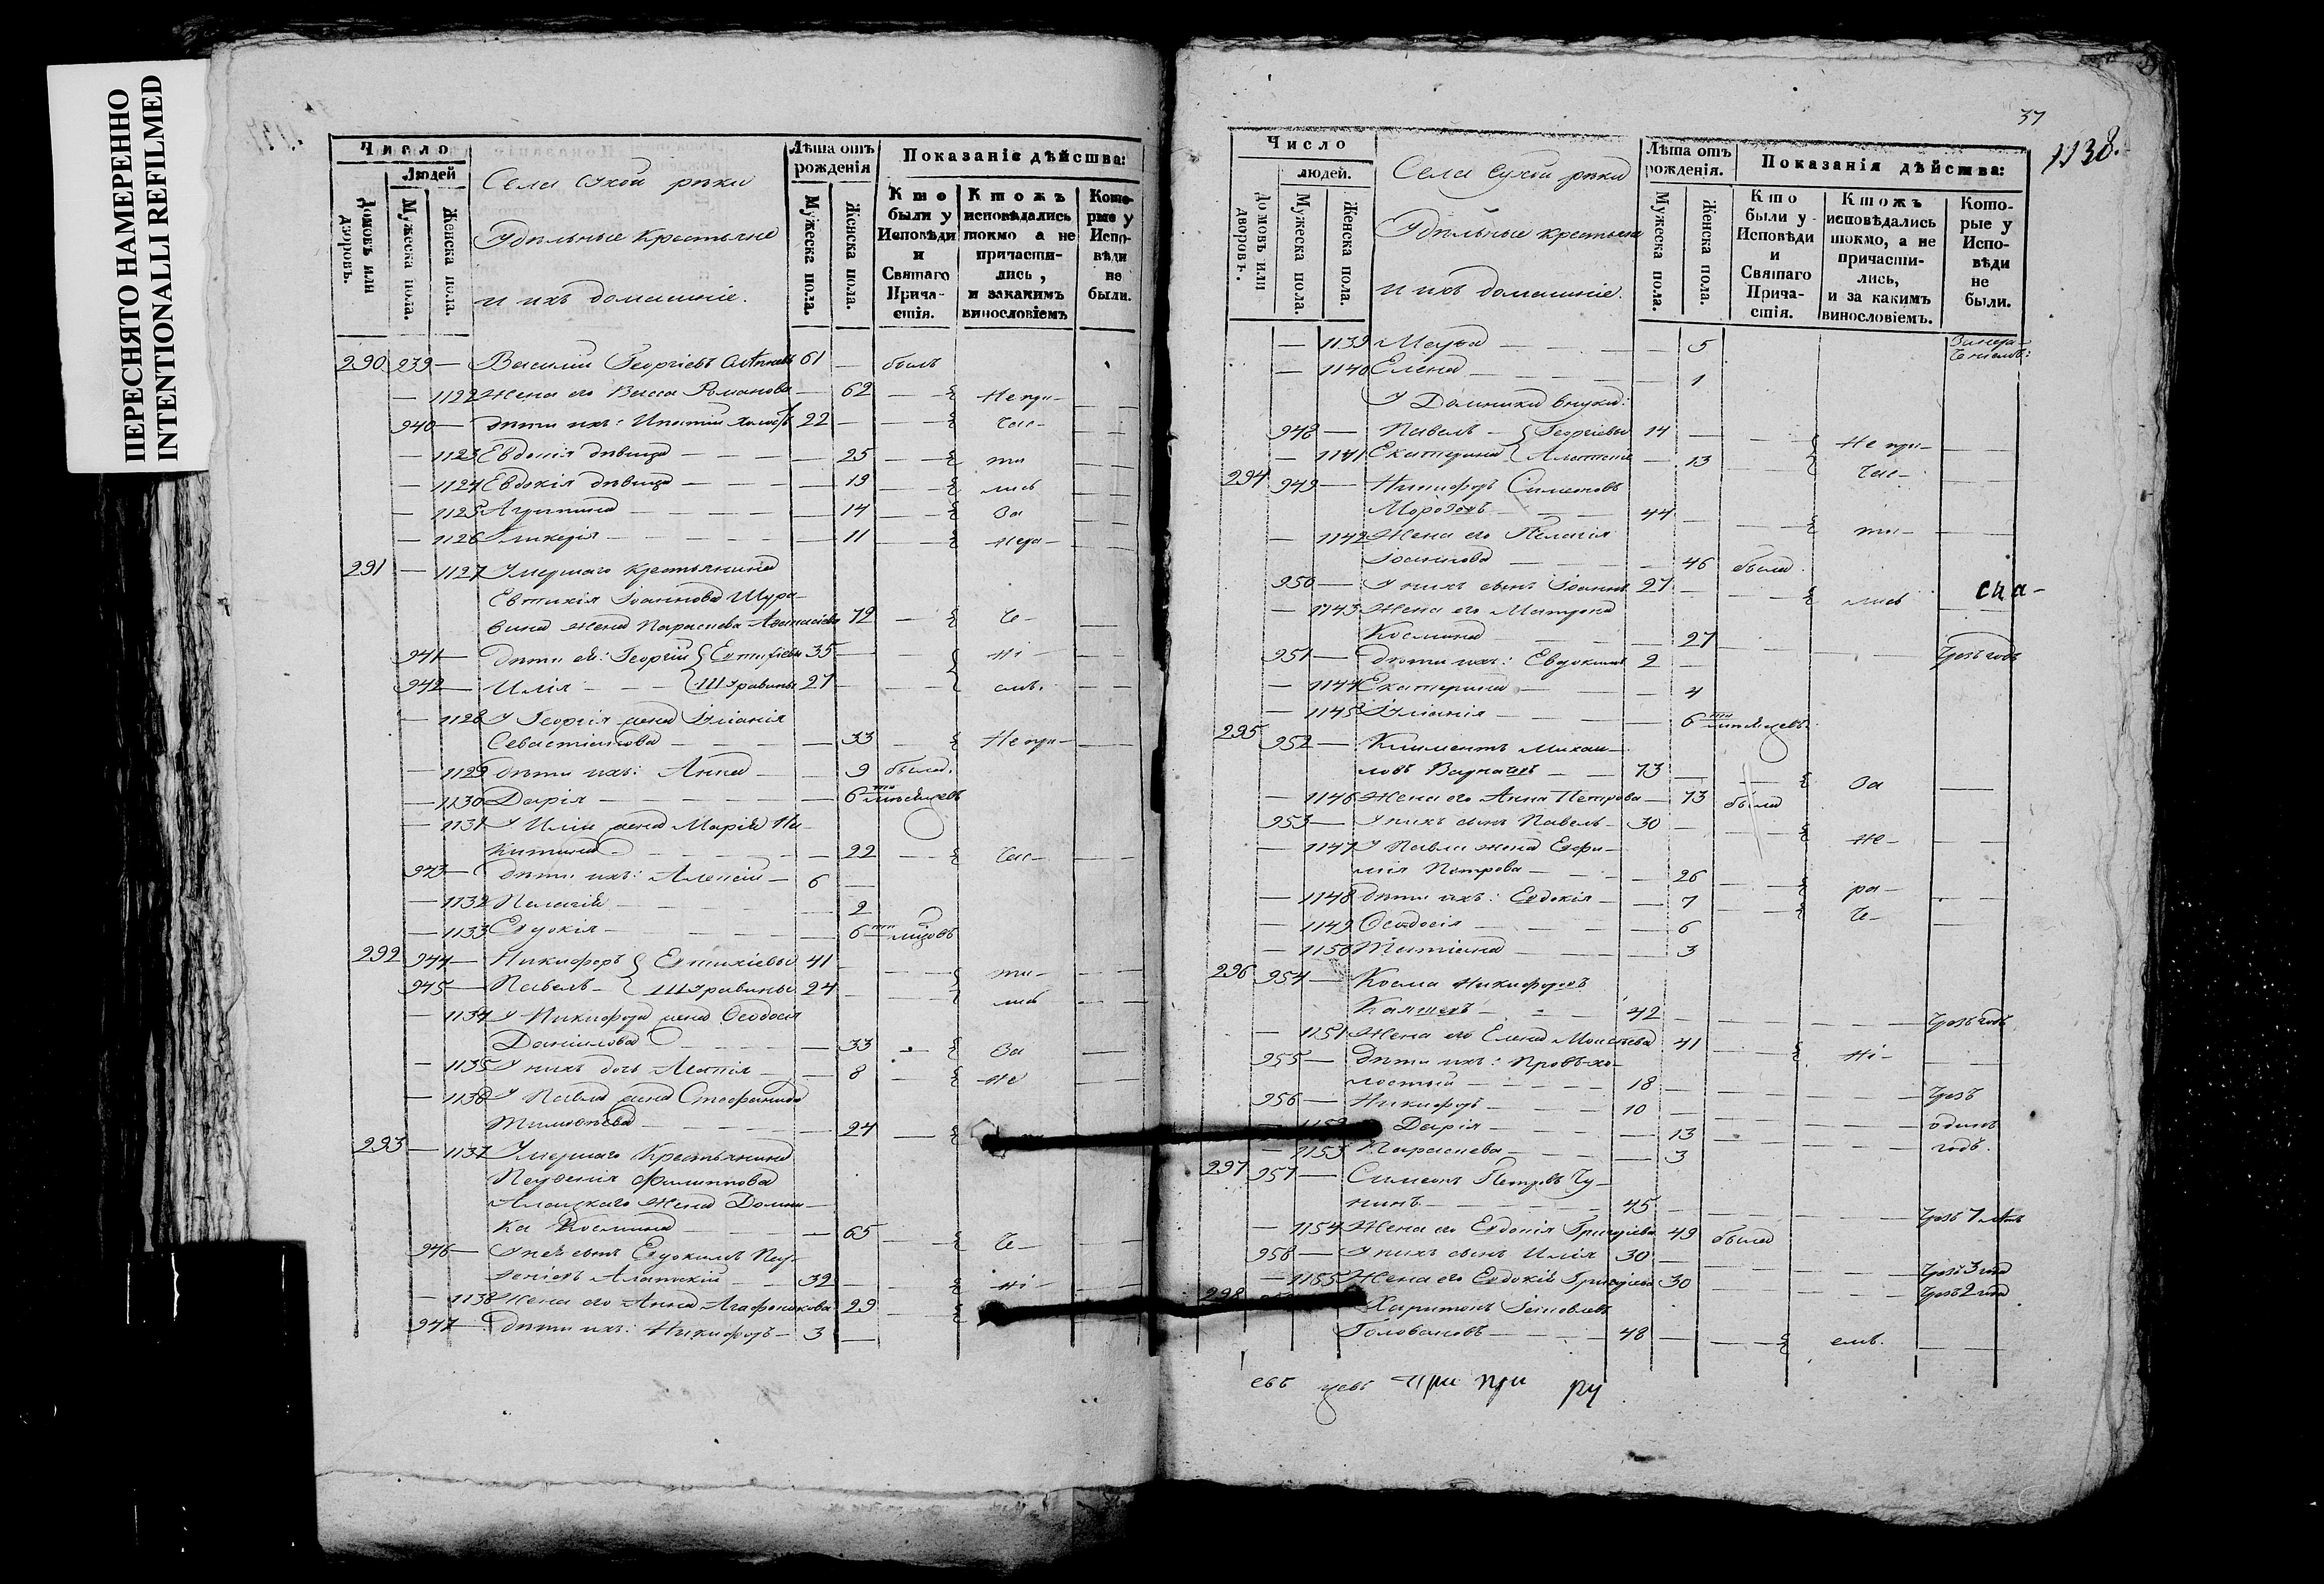 ПЕРЕСНЯТО НАМЕРЕННО
INTENTIONALLI REFILMED
Число
Людей
Домовъ или дворовъ.
Мужеска пола.
Женска пола.
Села Сухой рѣки
Удѣльные крестьяне
и ихъ домашніе.
Лѣта отъ рожденія
Мужеска пола.
Женска пола.
Показаніе дѣйства:
Кто были у Исповѣди и Святаго Причастія.
Ктожъ исповѣдались токмо а не причастились, и закакимъ винословіемъ
Которые у Исповѣди не были.
290 939 — Василій Георгіевъ 61 — былъ
— 1122 Жена его Васса Романова — 62 — Не при-
940 — дѣти ихъ: Ипатій 22 — час-
— 1123 Евдокія дѣвица — 25 — ти
— 1124 Евдокія дѣвица — 19 — лись
— 1125 Агрипина — 14 — За
— 1126 Гликерія — 11 — нера-
291 — 1127 Умершаго крестьянина
Евтихія Іоаннова Шура-
вина жена Параскева Афанасіева 72 — че-
941 — дѣти ея: Георгій Евтихіевы 35 — ні-
942 — Илія — Шуравины 27 — емъ.
— 1128 У Георгія жена Іуліанія
Севастіанова — 33 — Не при-
— 1129 дѣти ихъ: Анна — 9 была.
— 1130 Дарія — 6ти мѣсяцевъ
— 1131 У Иліи жена Марія Ни-
китина — 22 — час-
943 — дѣти ихъ: Алексій — 6 —
— 1132 Пелагія — 2
— 1133 Евдокія — 6ти
292 944 — Никифоръ Евтихіевы 41 — ти-
945 — Павелъ — Шуравины 24 — лись
— 1134 У Никифора жена Ѳеодосія
Даніилова — 33 — За
— 1135 У нихъ дочь — 8 — не
— 1136 У Павла жена Стефанида
Тимоѳеева — 24 —
293 — 1137 Умершаго Крестьянина
Филиппова
жена Домни-
ка Космина — 65 — че-
946 — У ней сынъ Евдокимъ
Алатскій — 32 — ні-
— 1138 Жена его Анна Агафоникова 29 —
947 — дѣти ихъ: Никифоръ — 3 —
37
1138.
Число
людей.
Домовъ или дворовъ.
Мужеска пола.
Женска пола.
Села Сухой рѣки
Удѣльные крестьяне
и ихъ домашніе.
Лѣта отъ рожденія.
Мужеска пола.
Женска пола.
Показанія дѣйства:
Кто были у Исповѣди и Святаго Причастія.
Ктожъ исповѣдались токмо, а не причастились, и за какимъ винословіемъ.
Которые у Исповѣди не были.
— 1139 — 5
— 1140 Елена — 1
У Домники внуки:
948 — Павелъ — Георгіевы 14 — Не при-
— 1141 Екатерина — 13 — час-
294 949 — Никифоръ Симеоновъ
Морозовъ — 44 — ти-
— 1142 Жена его Пелагія
Іоаннова — 46 была.
950 — У нихъ сынъ Іоаннъ 27 — лись
сиа-
— 1143 Жена его Матрона
Космина — 27 — Чрезъ годъ
951 — дѣти ихъ: Евдокимъ 2 —
— 1144 Екатерина — 4
— 1145 Іуліанія — 6ти мѣсяцевъ.
295 952 — Климентъ Михаи-
ловъ — 73 — За
— 1146 Жена его Анна Петрова — 73 была
953 — У нихъ сынъ Павелъ — 30 — не-
— 1147 У Павла жена Евфи-
мія Петрова — 26 — ра-
— 1148 дѣти ихъ: Евдокія — 7 — че-
— 1149 Ѳеодосія — 6
— 1150 Татіана — 3
296 954 — Косма Никифоровъ
42 — Чрезъ годъ
— 1151 Жена его Елена Моисѣева 41 — ні-
955 — дѣти ихъ: Провъ хо-
лостый — 18 — Чрезъ
956 — Никифоръ — 10 — одинъ
— 1152 Дарія — 13 — годъ.
— 1153 Параскева — 3
297 957 — Симеонъ Петровъ Чу-
нинъ — 45 — Чрезъ 7 лѣтъ
— 1154 Жена его Евдокія Григоріева 49 была
958 — У нихъ сынъ Илія 30 — Чрезъ 3 года
— 1155 Жена его Евдокія Григоріева 30 — Чрезъ 2 года
298 Харитонъ Іаковлевъ
Головановъ — 48 — емъ.
евъ при при ру